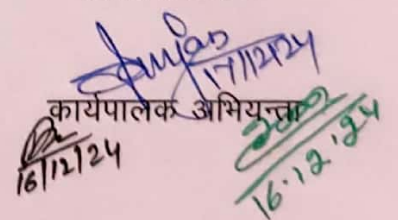 17/12/24
कार्यपालक अभियन्ता
16/12/24
16.12.24